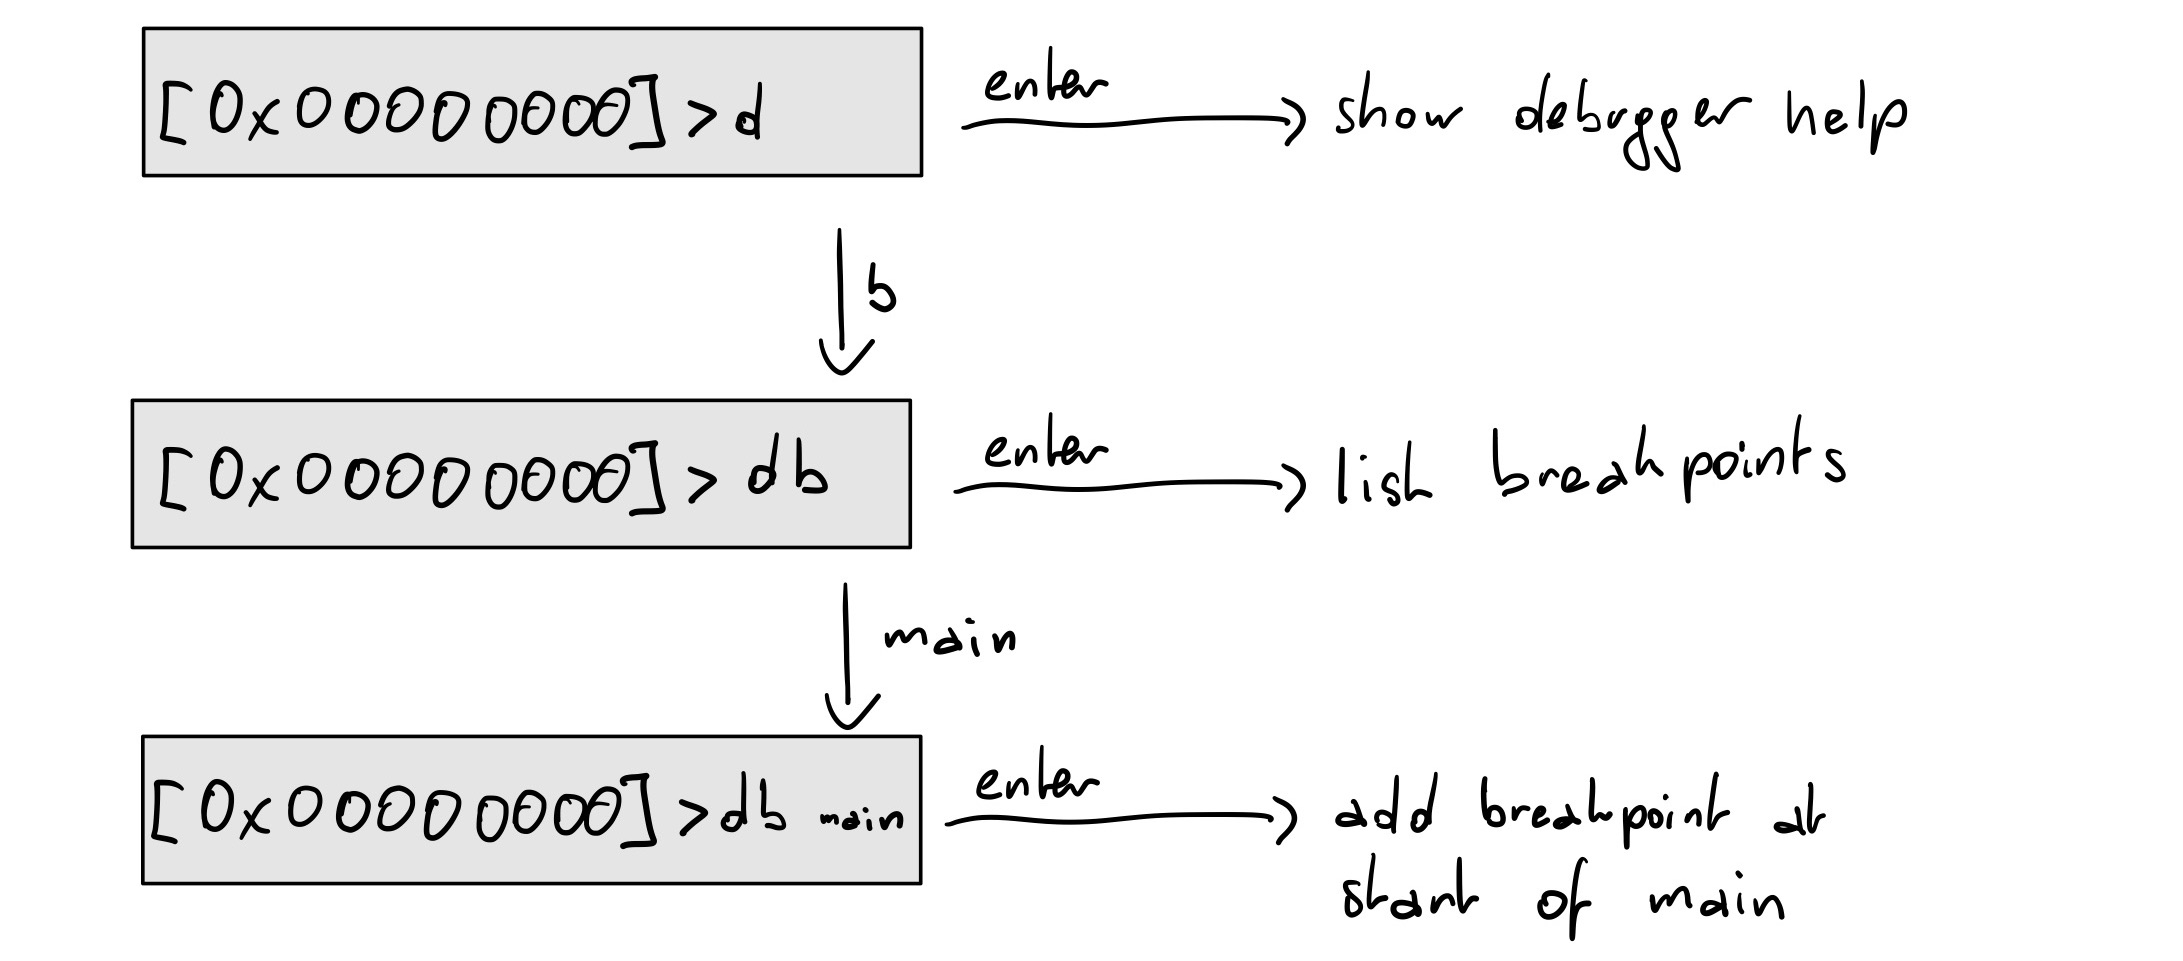 [0x00000000]>d
enter
show debugger help
b
[0x00000000]> db
enter
list breakpoints
main
[0x00000000]>db main
enter
add breakpoint at
start of main